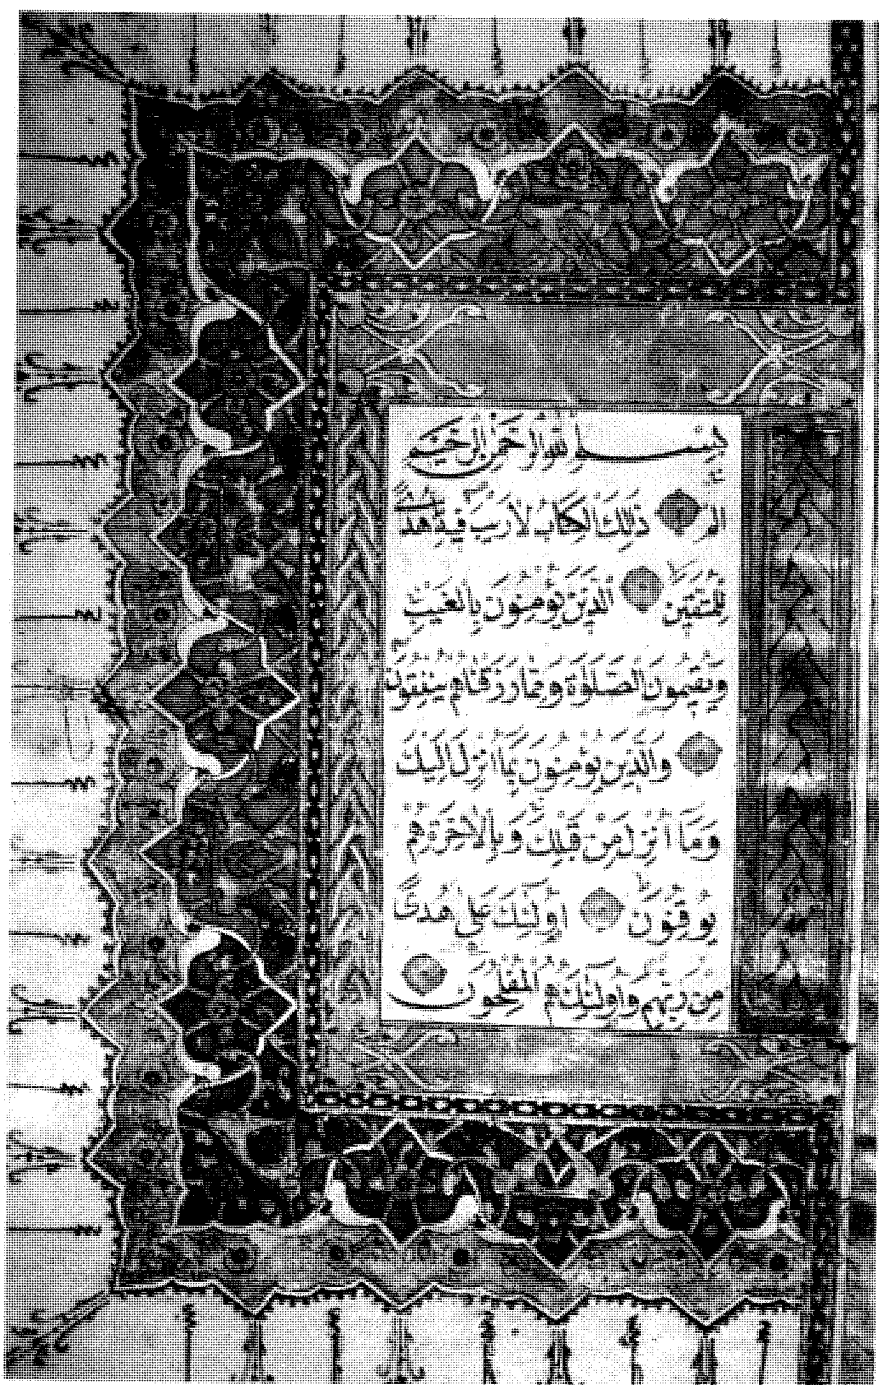 بِسْمِ اللهِ الرَّحْمٰنِ الرَّحِيمِ
الم ذٰلِكَ الْكِتَابُ لَا رَيْبَ فِيهِ هُدًى
لِلْمُتَّقِينَ اَلَّذِينَ يُؤْمِنُونَ بِالْغَيْبِ
وَيُقِيمُونَ الصَّلٰوةَ وَمِمَّا رَزَقْنَاهُمْ يُنْفِقُونَ
وَالَّذِينَ يُؤْمِنُونَ بِمَا اُنْزِلَ اِلَيْكَ
وَمَا اُنْزِلَ مِنْ قَبْلِكَ وَبِالْاٰخِرَةِ هُمْ
يُوقِنُونَ اُولٰئِكَ عَلٰى هُدًى
مِنْ رَبِّهِمْ وَاُولٰئِكَ هُمُ الْمُفْلِحُونَ